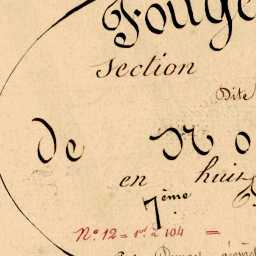 Fouge
Section
Dite
De No
en huit
7ème
N° 12 = 1er à 104 =